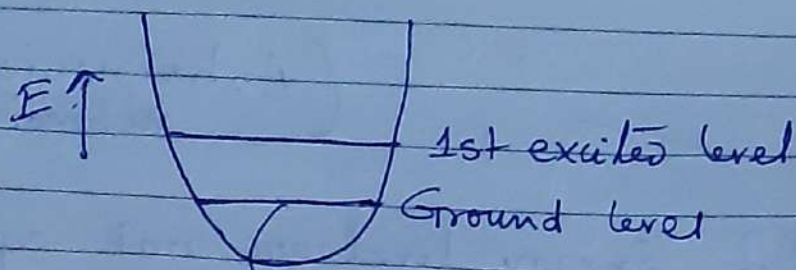 E↑
1st excited level
Ground level